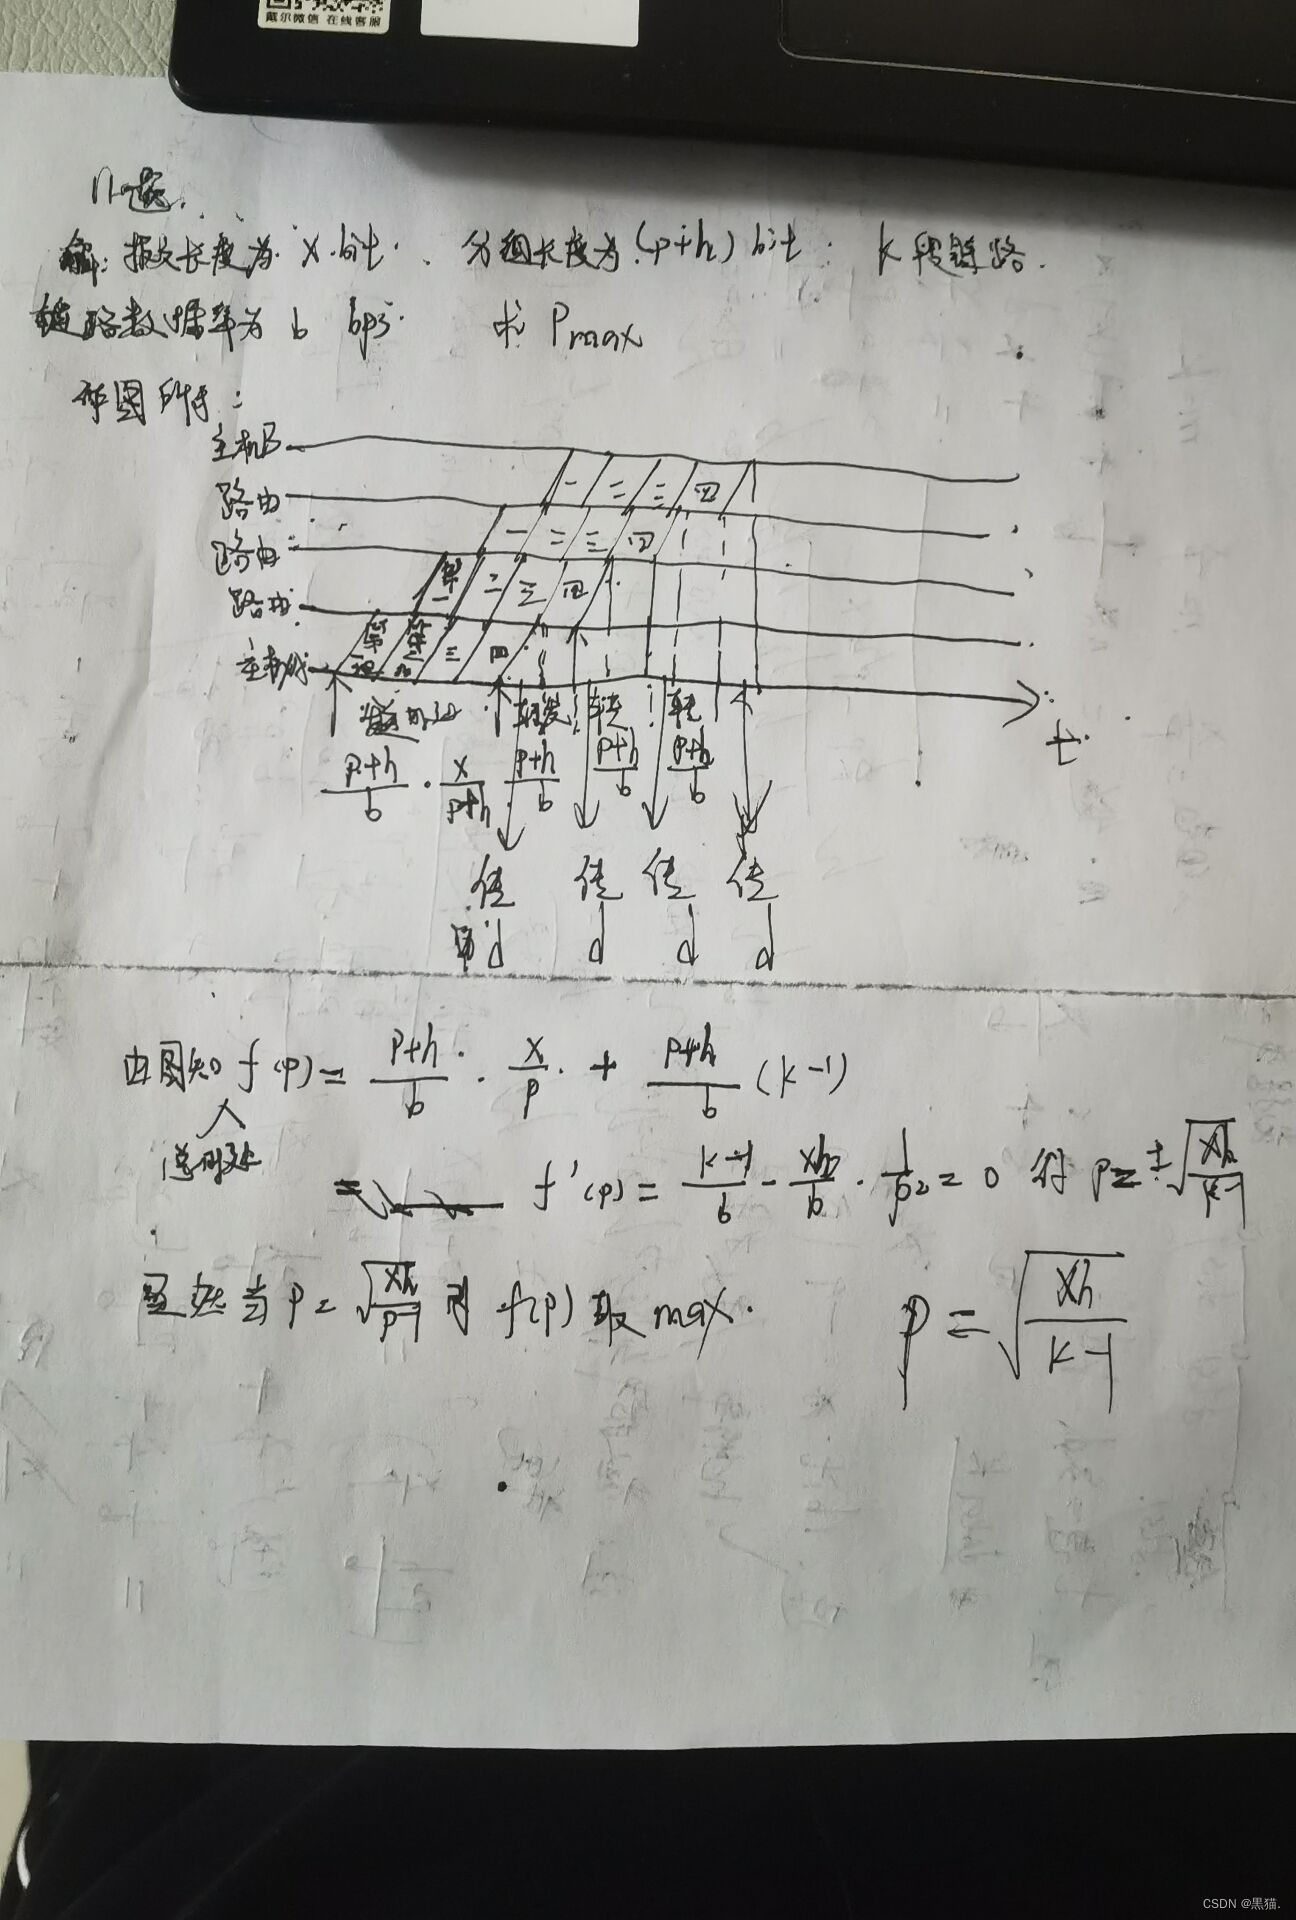 戴尔微信 在线客服
11题.
解: 报文长度为 x bit. 分组长度为 (p+h) bit. k段链路.
链路数据率为 b bps. 求 Pmax
作图所示:
主机B
一 二 三 四
路由
一 二 三 四
路由
第一 二 三 四
路由
第一 第二 三 四
主机
t
发送时延 转发 转发 转发
(p+h)/b · x/(p+h) (p+h)/b (p+h)/b (p+h)/b
传 传 传 传
d d d d
由图知 f(p) = (p+h)/b · x/p + (p+h)/b (k-1)
总时延
f'(p) = (k-1)/b - xh/b · 1/p2 = 0 得 p = ±√(xh/(k-1))
显然当 p = √(xh/(p-1)) 时 f(p) 取 max.
p = √(xh/(k-1))
CSDN @黒猫.